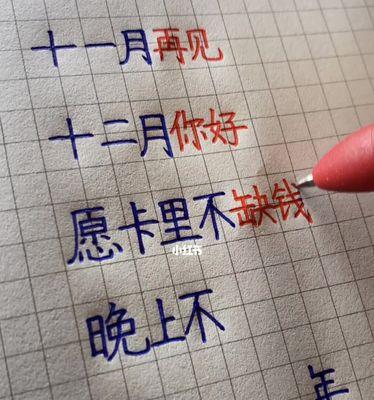 十一月再见
十二月你好
愿卡里不缺钱
小红书
晚上不
年